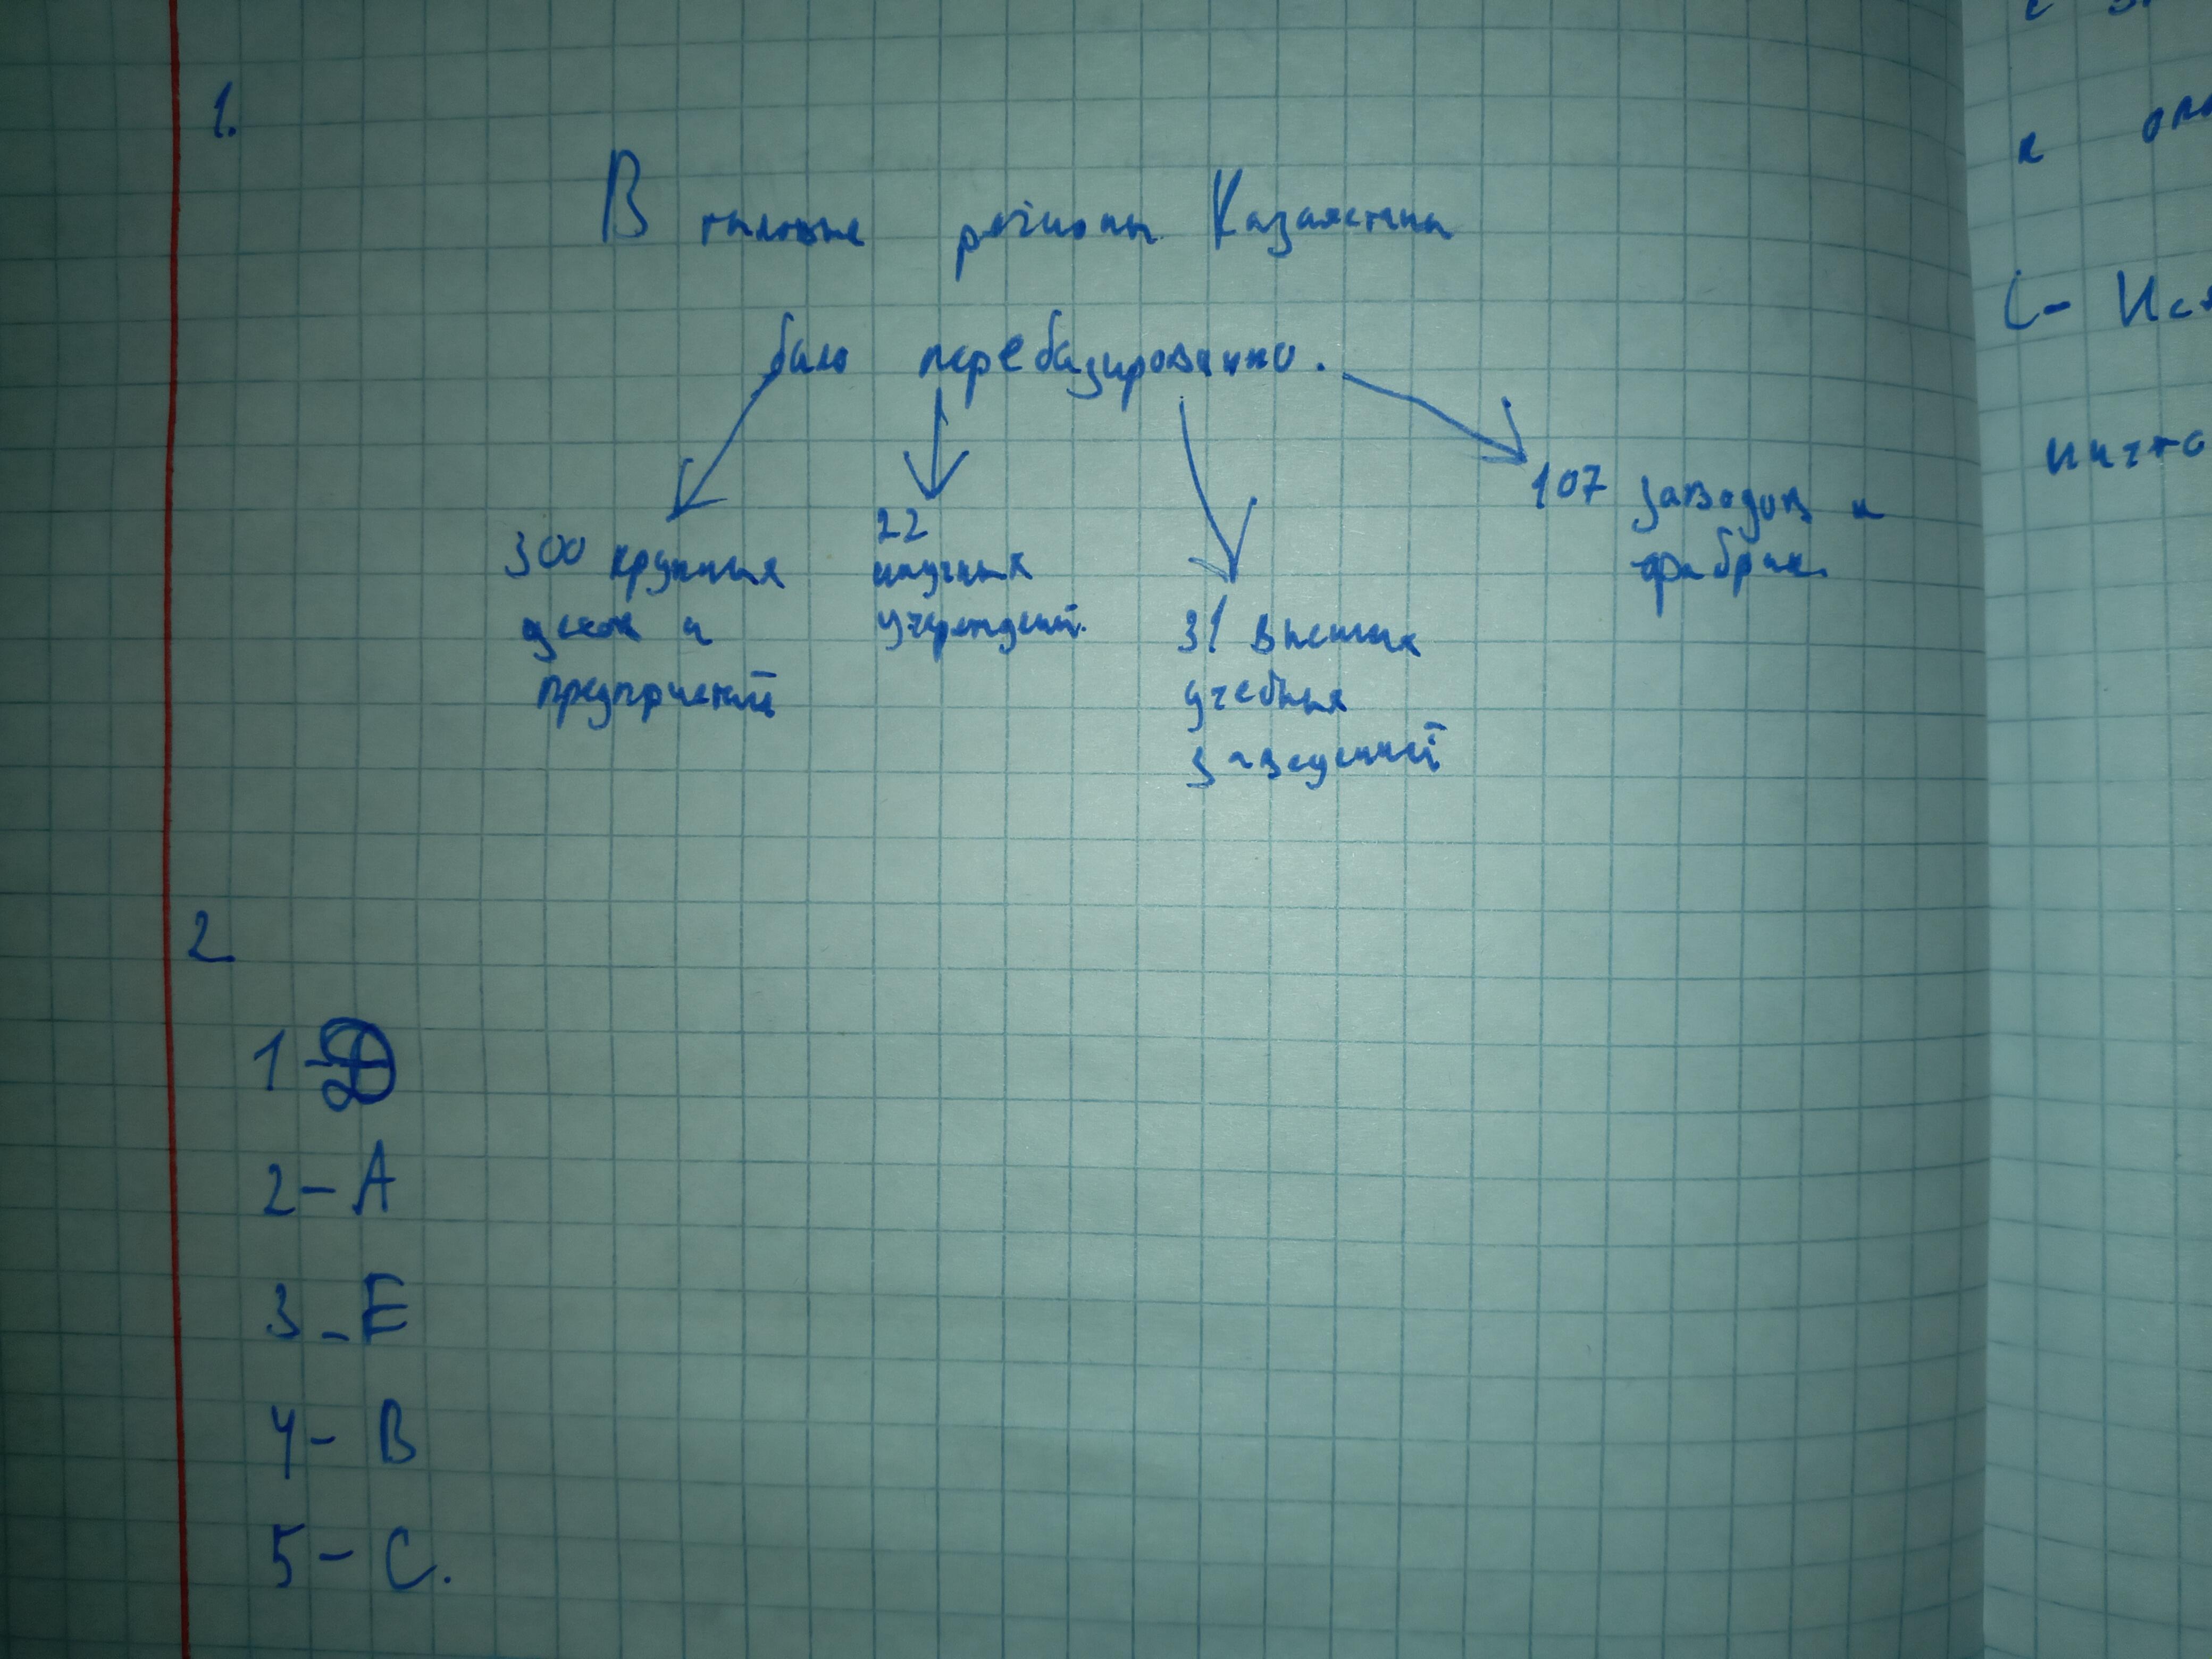 1.
В тыловые регионы Казахстана
было перебазированно.
300 крупных
цехов и
предприятий
22
научных
учреждений.
31 высших
учебных
заведений
107 заводов и
фабрик.
2.
1-D
2-A
3-E
4-B
5-C.
к
C-